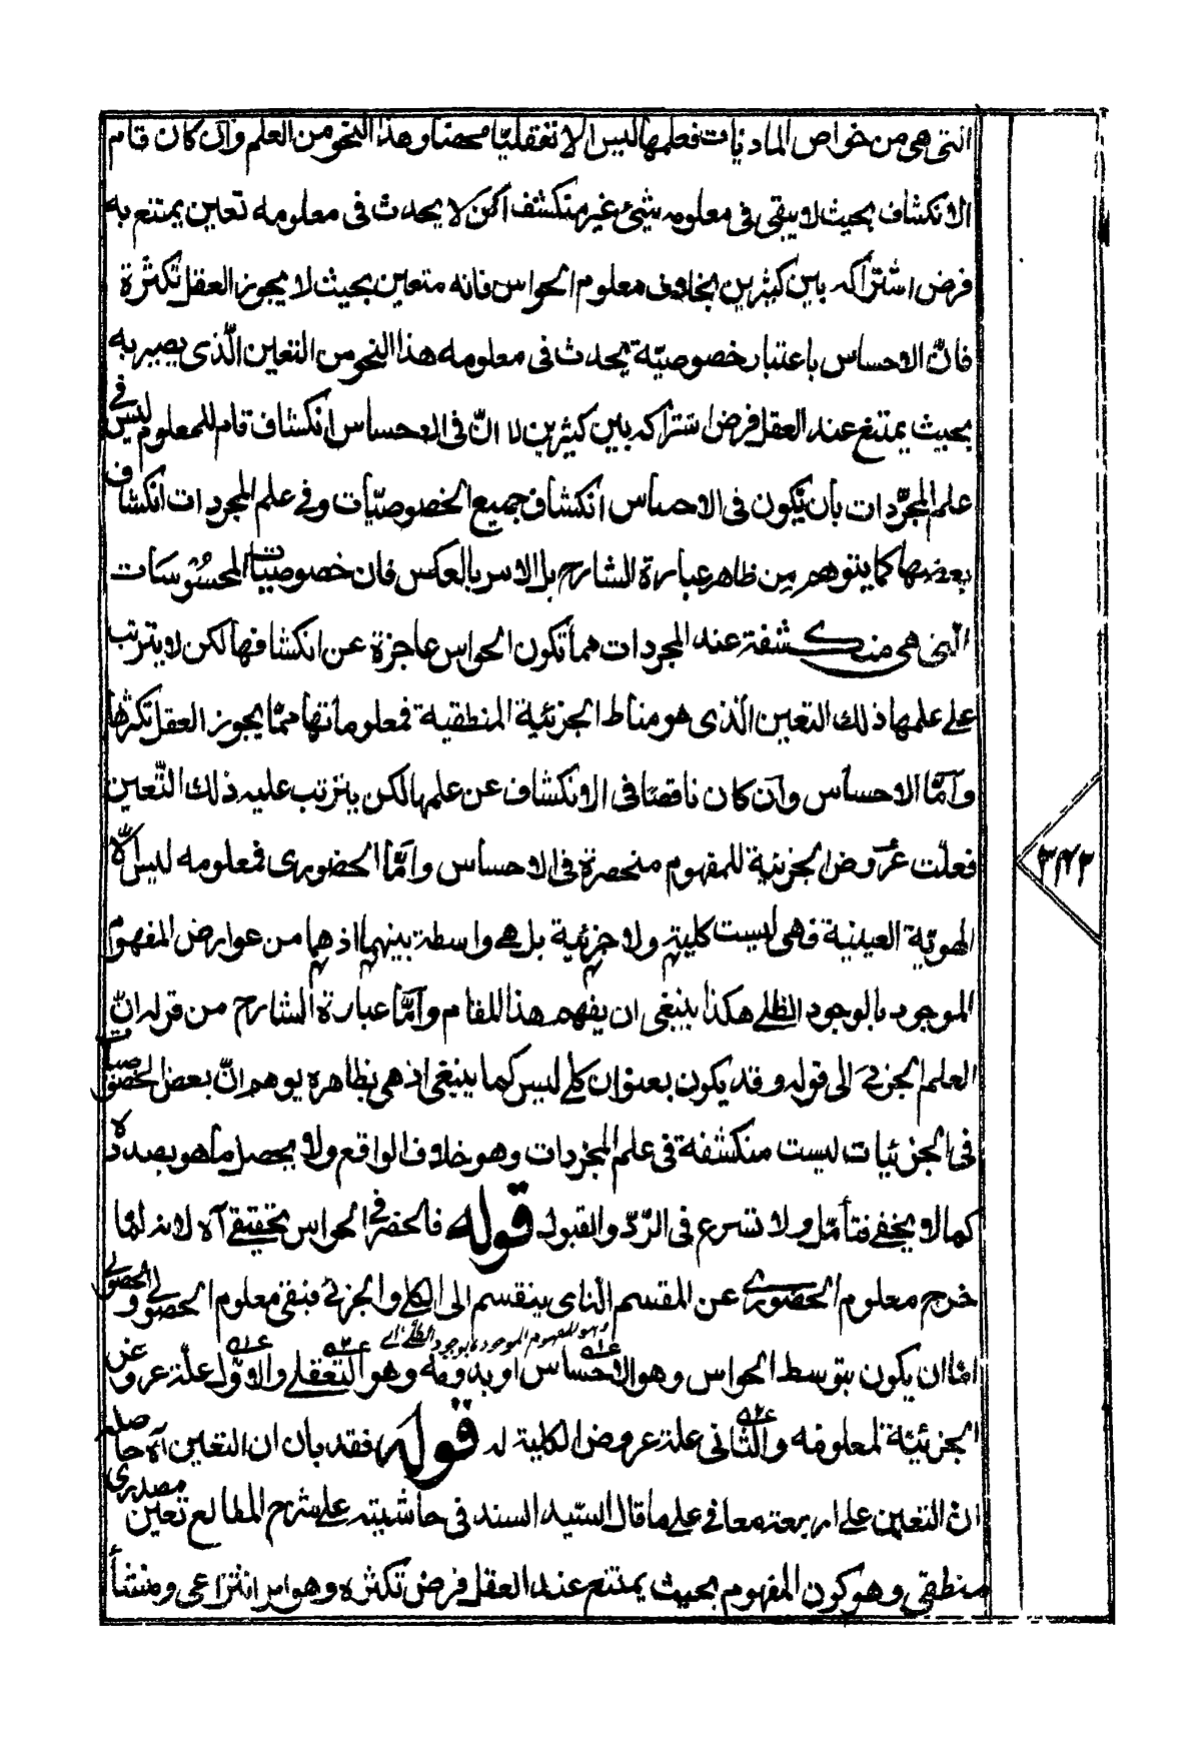 التى هى من خواص الماديات فعلمها ليس الا تعقليّا محضا وهذا النحو من العلم وآن كان تام
الانكشاف بحيث لا يبقى فى معلومه شيئ غير منكشف لكن لا يحدث فى معلومه تعين يمتنع به
فرض اشتراكه بين كثيرين بخلاف معلوم الحواس فانه متعين بحيث لا يجوز العقل تكثرة
فانّ الاحساس باعتبار خصوصيّة يحدث فى معلومه هذا النحو من التعين الّذى يصير به
بحيث يمتنع عند العقل فرض اشتراكه بين كثيرين لا انّ فى الاحساس انكشاف تام للمعلوم ليس فى
علم المجرّدات بأن يكون فى الاحساس انكشاف جميع الخصوصيّات وفى علم المجردات انكشاف
بعضها كما يتوهم من ظاهر عبارة الشارح بل الامر بالعكس فان خصوصيّات المحسُوسَات
الّتى هى منكشفة عند المجردات مما تكون الحواس عاجزة عن انكشافها لكن لا يترتب
على علمها ذلك التعين الّذى هو مناط الجزئية المنطقية فمعلوماتها ممّا يجوز العقل تكثرها
وآمّا الاحساس وآن كان ناقصا فى الانكشاف عن علمها لكن يترتب عليه ذلك التّعين
فعلّت عرُوض الجزئية للمفهوم منحصرة فى الاحساس وآمّا الحضورى فمعلومه ليس الّا
الهوية العينية فهى ليست كلية ولا جزئية بل هى واسطة بينهما اذ هما من عوارض المفهوم
الموجود بالوجود الظلى هكذا ينبغى ان يفهم هذا المقام وآمّا عبارة الشارح من قوله انّ
العلم الجزئى الى قوله وقد يكون بعنوان كلى ليس كما ينبغى اذ هى بظاهره يوهم انّ بعض الخصوصيات
فى الجزئيات ليست منكشفة فى علم المجردات وهو خلاف الواقع ولا يحصل ما هو بصدده
كما لا يخفى فتأمّل ولا تسرع فى الرّدّ والقبول قوله فالحصر فى الحواس تحقيقى آه لانه لمّا
خرج معلوم الحضورى عن المقسم الذى ينقسم الى الكلى والجزئى فبقى معلوم الحصولى والحصولى
وهو المفهوم الموجود بوجود الظلّى
امّا ان يكون بتوسط الحواس وهو الاحساس او بدونه وهو التعقلى والاوّل علّة عروض
الجزئيّة لمعلومه والثانى علة عروض الكلية له قوله فقد بان ان التعين آه حاصله
انّ التعين على اربعة معانى على ما قال السّيد السند فى حاشيته على شرح المطالع تعين مصدرى
منطقى وهو كون المفهوم بحيث يمتنع عند العقل فرض تكثره وهو امر انتزاعى ومنشأ